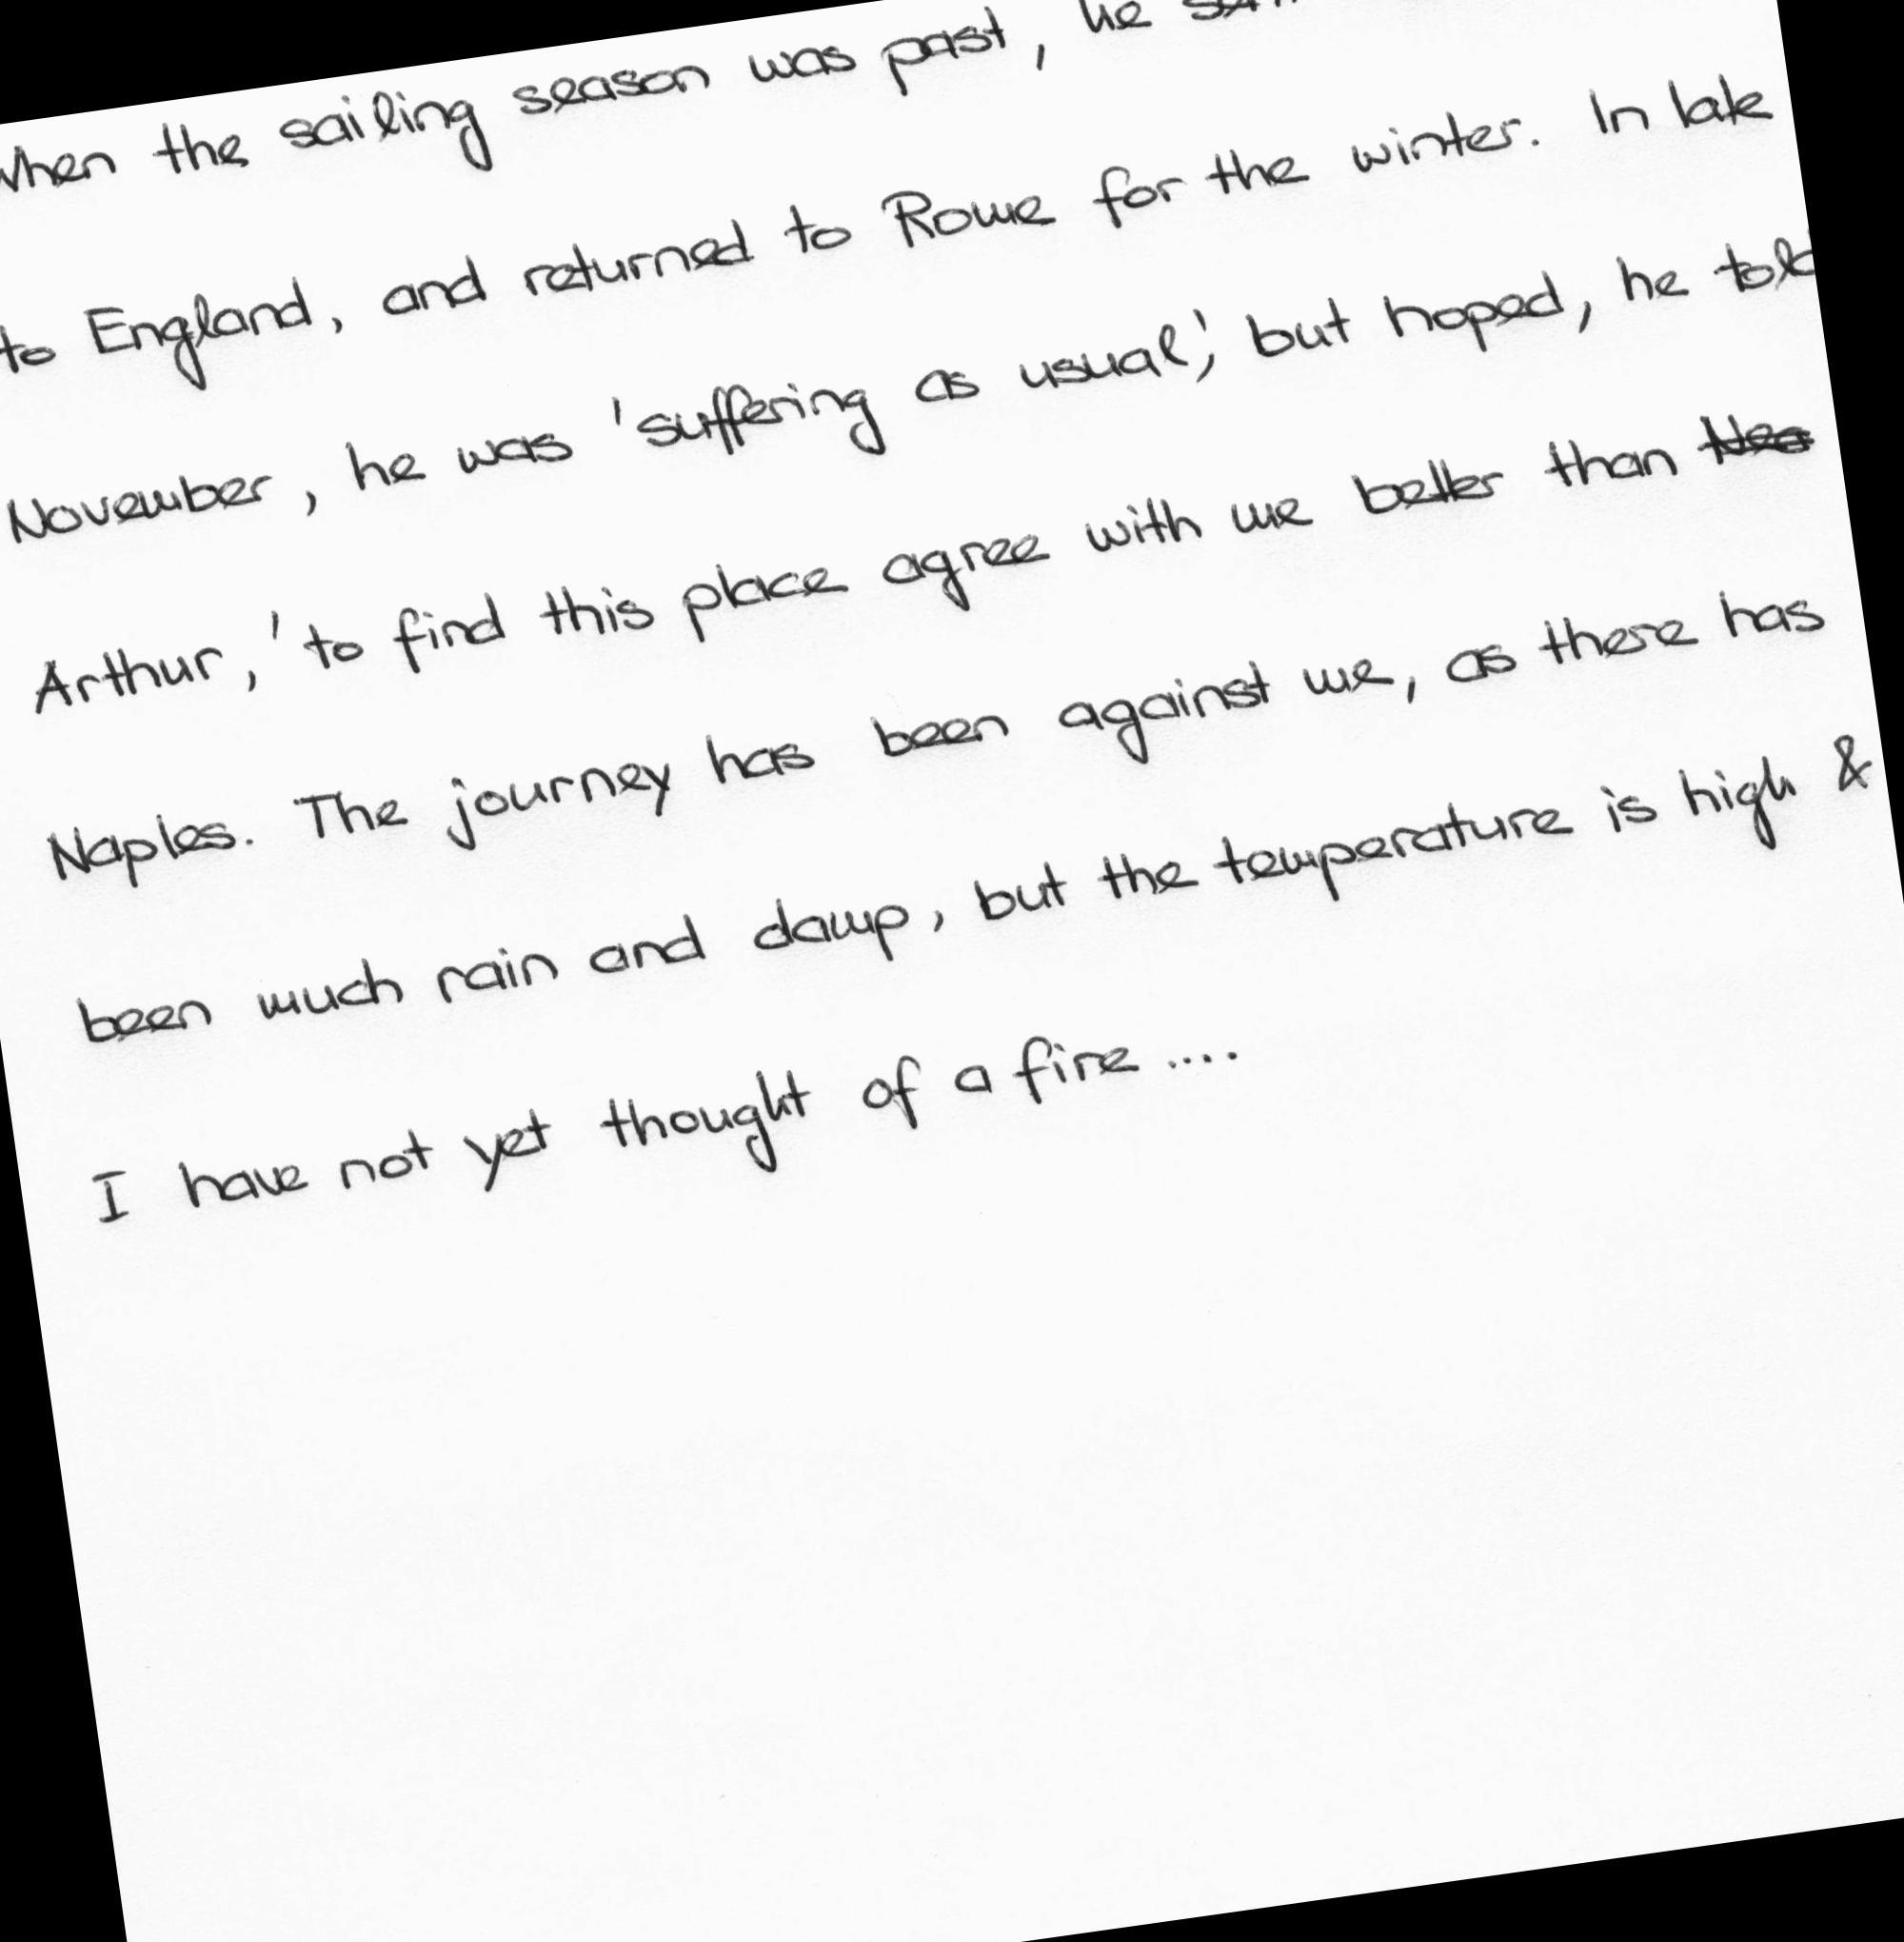 When the sailing season was past, he
to England, and returned to Rome for the winter. In late
November, he was 'suffering as usual', but hoped, he told
Arthur, 'to find this place agree with me better than
Naples. The journey has been against me, as there has
been much rain and damp, but the temperature is high &
I have not yet thought of a fire ....